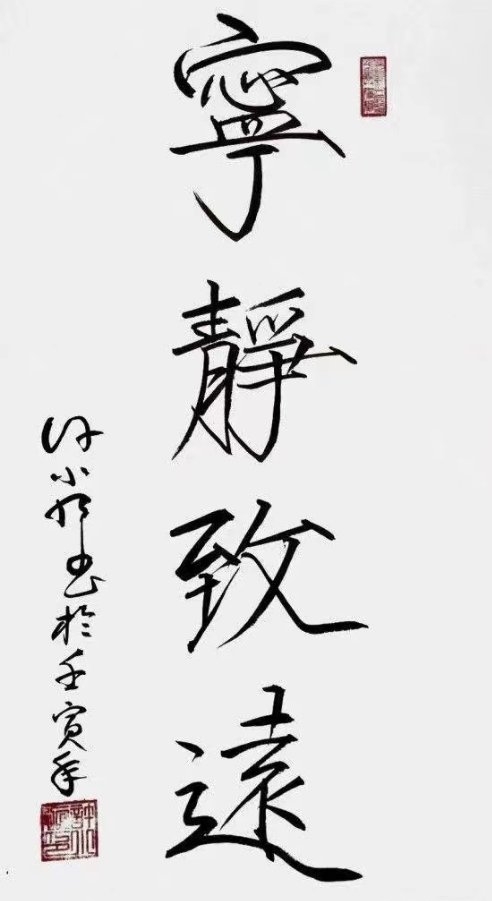 寧靜致遠
许小明书於壬寅年